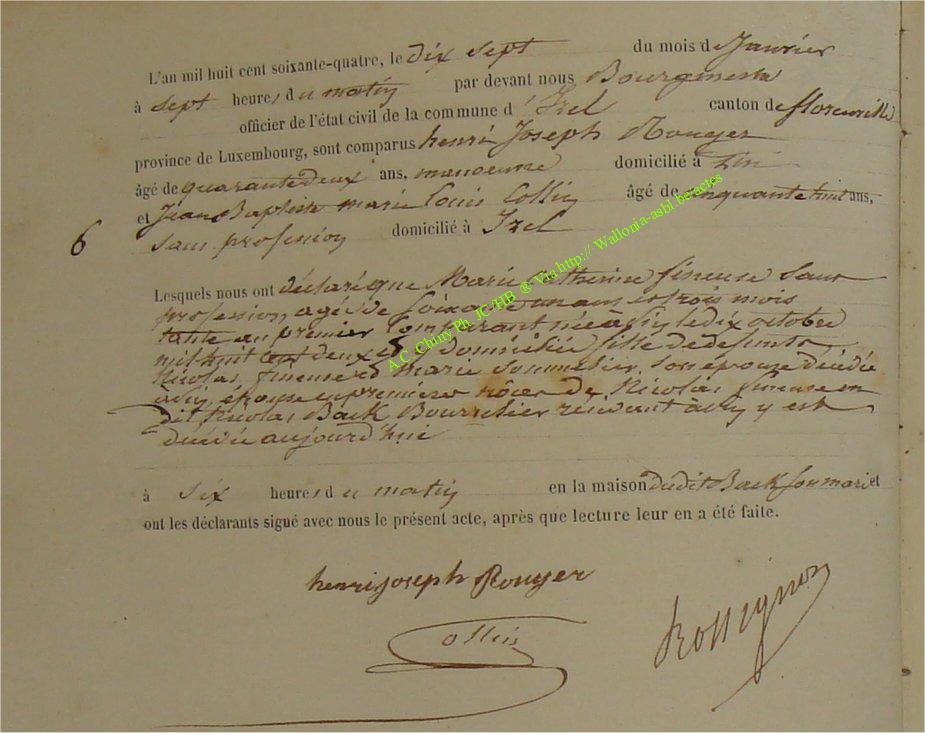 L'an mil huit cent soixante-quatre, le dix sept du mois de Janvier
à sept heures du matin par devant nous Bourgmestre
officier de l'état civil de la commune d'Izel canton de florenville
province de Luxembourg, sont comparus henri Joseph Rouyer
âgé de quarante deux ans, manoeuvre domicilié à
et Jean Baptiste marie Louis Collin âgé de cinquante huit ans,
6
sans profession domicilié à Izel
Lesquels nous ont déclaré que Marie Catherine fineuse sans
profession, agée de soixante un ans et trois mois
tante au premier Comparant née à le dix octobre
mil huit cent deux et y Domiciliée fille de defunts
Nicolas fineuse et Marie Sommelier, son épouse décédée
épouse en premières nôces de Nicolas fineuse en
dit Nicolas Back Bourrelier y est
décédée aujourd'hui
à six heures du matin en la maison dudit Back son mari et
ont les déclarants signé avec nous le présent acte, après que lecture leur en a été faite.
henri joseph Rouyer
Collin
Rossignon
A.C. Chiny Ph. JC/HB ® Via http:// Wallonia-asbl.be/actes